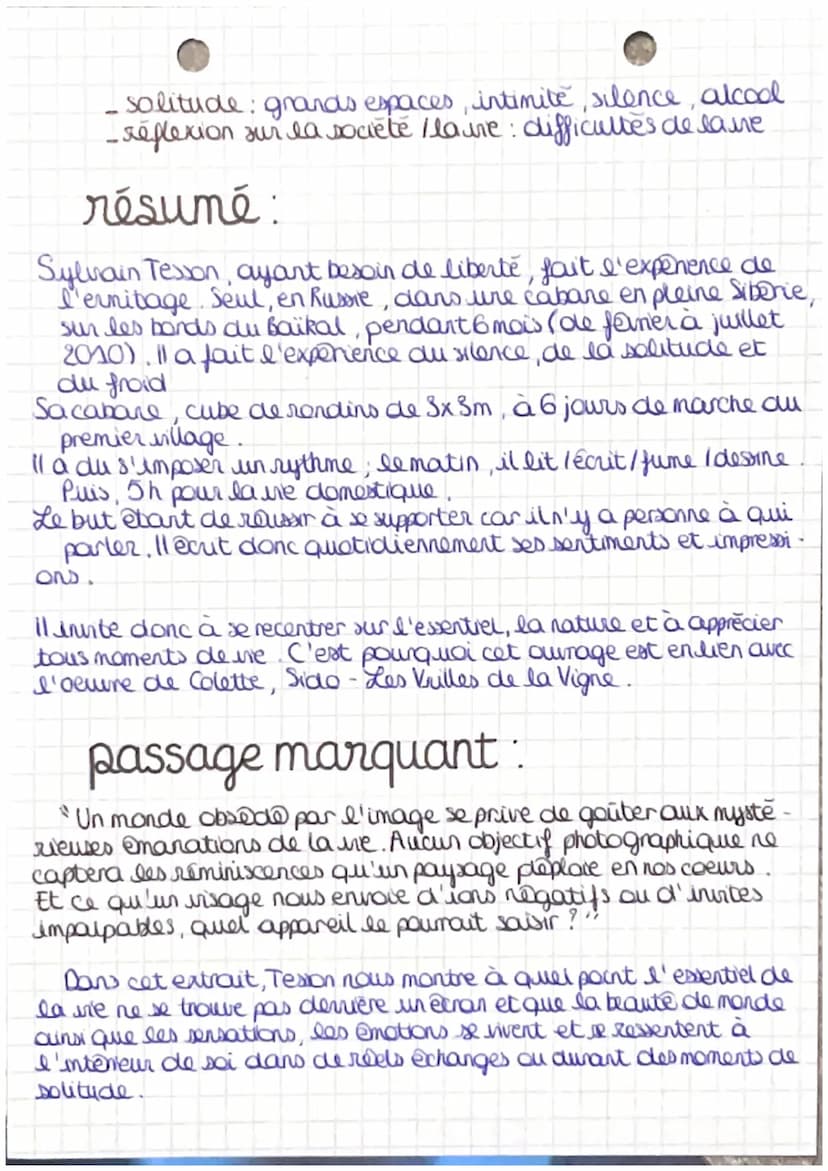 - solitude : grands espaces, intimité, silence, alcool
- réflexion sur la société / la vie : difficultés de la vie
résumé :
Sylvain Tesson, ayant besoin de liberté, fait l'expérience de
l'ermitage. Seul, en Russie, dans une cabane en pleine Sibérie,
sur les bords du Baïkal, pendant 6 mois (de février à juillet
2010). Il a fait l'expérience du silence, de la solitude et
du froid
Sa cabane, cube de rondins de 3x3m, à 6 jours de marche du
premier village.
Il a du s'imposer un rythme ; le matin, il lit / écrit / fume / dessine.
Puis, 5h pour la vie domestique.
Le but étant de réussir à se supporter car il n'y a personne à qui
parler. Il écrit donc quotidiennement ses sentiments et impressi-
ons.
Il invite donc à se recentrer sur l'essentiel, la nature et à apprécier
tous moments de vie. C'est pourquoi cet ouvrage est en lien avec
l'oeuvre de Colette, Sido - Les Vrilles de la Vigne.
passage marquant :
"Un monde obsédé par l'image se prive de goûter aux mysté-
rieuses émanations de la vie. Aucun objectif photographique ne
captera les réminiscences qu'un paysage déploie en nos coeurs.
Et ce qu'un visage nous envoie d'ions négatifs ou d'invites
impalpables, quel appareil le pourrait saisir ?"
Dans cet extrait, Tesson nous montre à quel point l'essentiel de
la vie ne se trouve pas derrière un écran et que la beauté de monde
ainsi que les sensations, les émotions se vivent et se ressentent à
l'intérieur de soi dans de réels échanges ou durant des moments de
solitude.